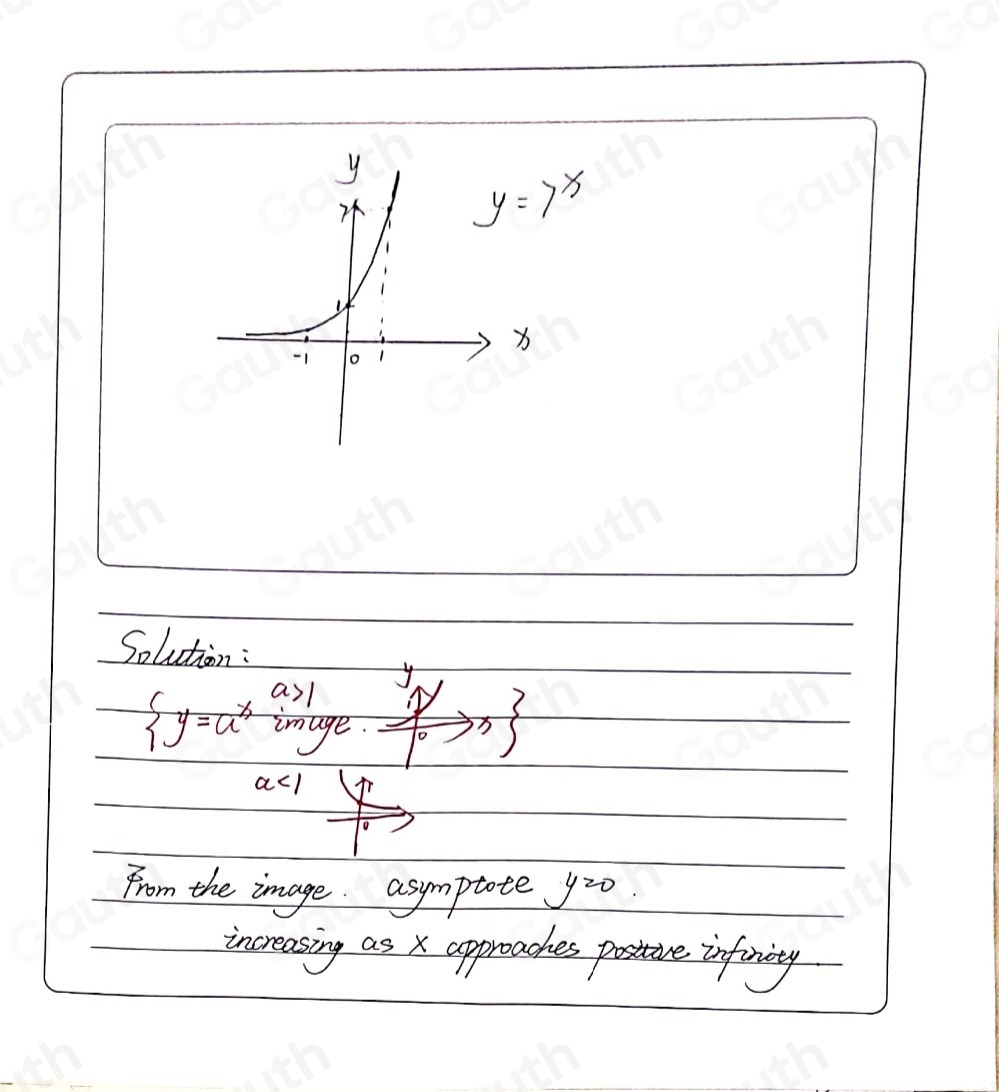 y
7
y = 7^x
1
x
-1 0 1
Solution:
a>1
y
{ y = a^x image. 0 x }
a<1
0
From the image. asymptote y=0.
increasing as x approaches positive infinity.
Gauth